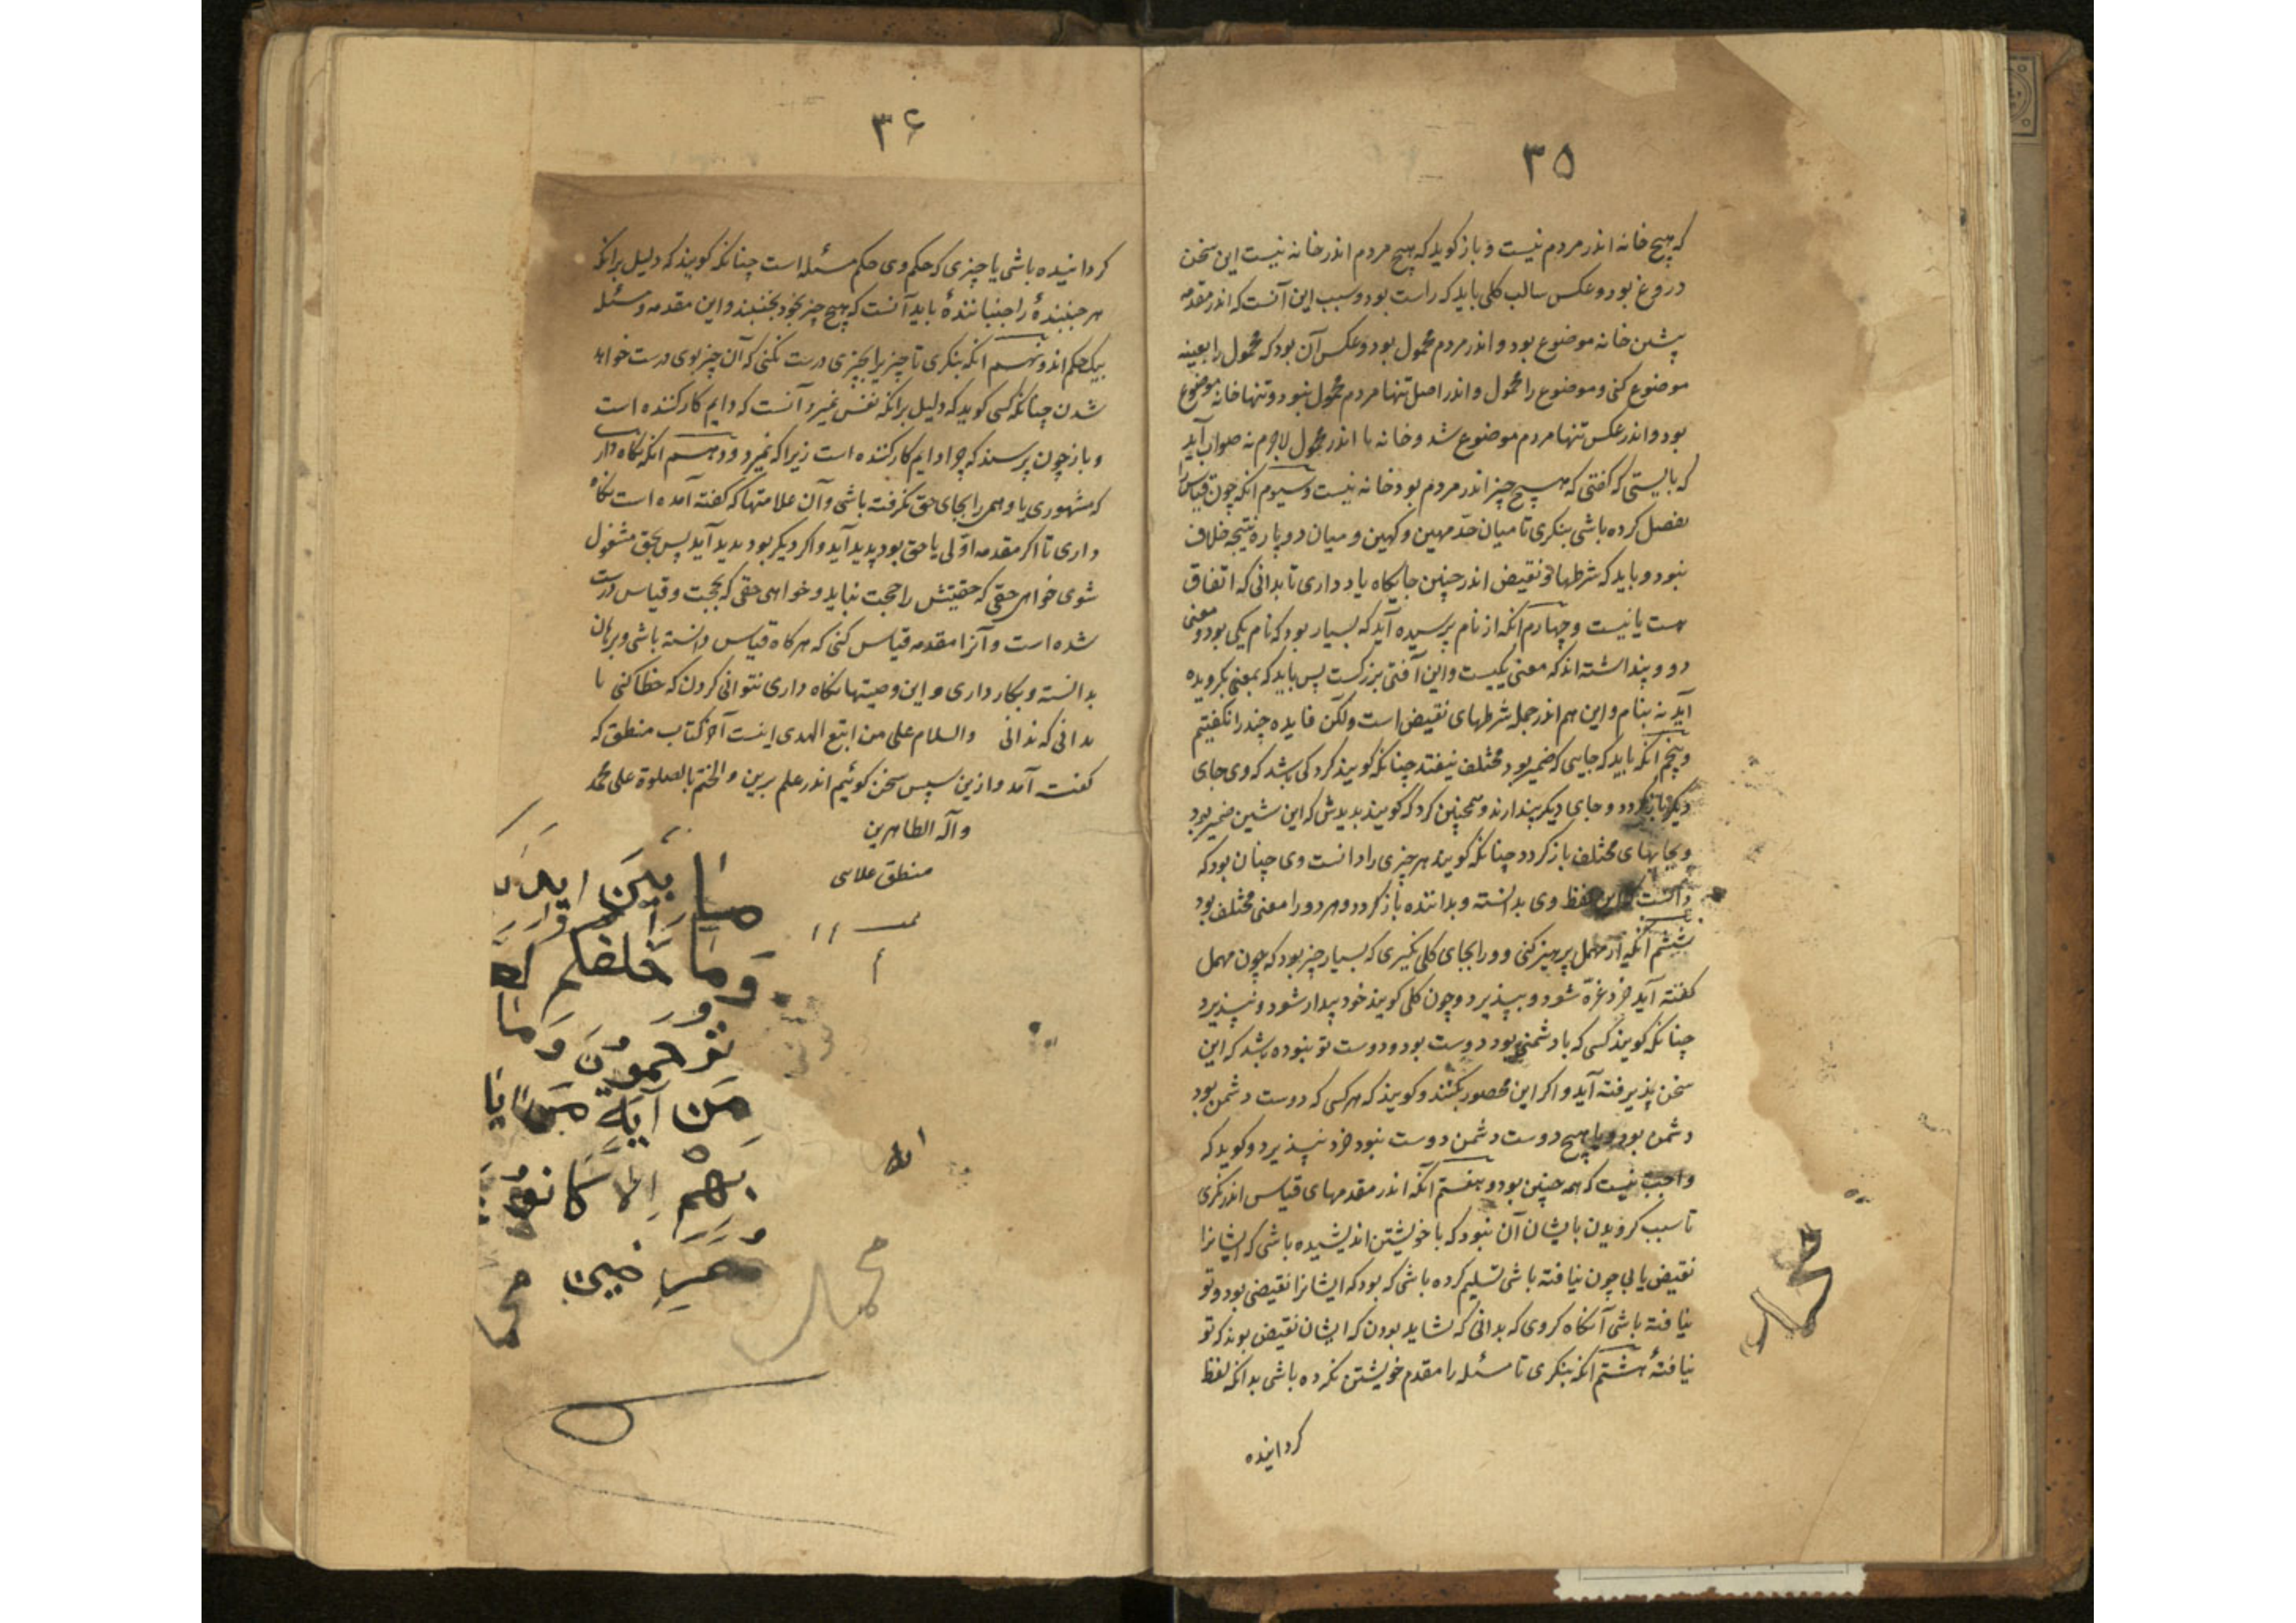 ۳۵
که هیچ خانه اندر مردم نیست و باز کوید که هیچ مردم اندر خانه نیست این سخن
دروغ بود و عکس سالب کلی باید که راست بود و سبب این آنست که اندر مقدمه
پیشین خانه موضوع بود و اندر مردم محمول بود و عکس آن بود که محمول را بعینه
موضوع کنی و موضوع را محمول و اندر اصل تنها مردم محمول نبود و تنها خانه موضوع
بود و اندر عکس تنها مردم موضوع شد و خانه با اندر محمول لاجرم نه صواب آید
که بایستی که کفتی که هیچ چیز اندر مردم بود خانه نیست و سیوم انکه چون قیاس را
تفصیل کرده باشی بنکری تا میان حدّ مهین و کهین و میان دو پاره نتیجه خلاف
نبود و باید که شرطهاء نقیض اندر چنین جایکاه یاد داری تا بدانی که اتفاق
هست یا نیست و چهارم انکه از نام پرسیده آید که بسیار بود که نام یکی بود و معنی
دو و پنداشته اند که معنی یکیست و این آفتی بزرکست پس باید که بمعنی بکرویده
آید نه بنام و این هم اندر جمله شرطهای نقیض است ولکن فایده چند را نکفتیم
و پنجم انکه باید که جایی که ضمیر بود مختلف نیفتد چنانکه کویند کرد کی باشد که وی جای
دیکر باز کردد و جای دیکر پندارند و همچنین کرد که کویند بدیدش که این شین ضمیر بود
و بجایهای مختلف باز کردد چنانکه کویند هر چیزی را دانست وی چنان بود که
دانست که این لفظ وی بدانسته و بداننده باز کردد و هر دو را معنی مختلف بود
ششم آنکه از مهمل پرهیز کنی و ورا بجای کلی نکیری که بسیار چیز بود که چون مهمل
کفته آید خرد غرّه شود و بپذیرد و چون کلی کویند خرد بیدار شود و نپذیرد
چنانکه کویند کسی که با دشمن بود دوست بود و دوست تو نبوده باشد که این
سخن پذیرفته آید و اکر این محصور بکنند و کویند که هر کسی که دوست دشمن بود
دشمن بود و یا هیچ دوست دشمن دوست نبود خرد نپذیرد و کوید که
واجب نیست که همه چنین بود و هفتم آنکه اندر مقدمهای قیاس اندر نکری
تا سبب کرویدن بایشان آن نبود که با خویشتن اندیشیده باشی که ایشانرا
نقیض یابی چون نیافته باشی تسلیم کرده باشی که بود که ایشانرا نقیض بود و تو
نیافته باشی آنکاه کروی که بدانی که نشاید بودن که ایشان نقیض بوند که تو
نیافتهٔ هشتم انکه بنکری تا مسئله را مقدم خویشتن نکرده باشی بدانکه لفظ
کردانیده
۳۶
کردانیده باشی یا چیزی که حکم وی حکم مسئله است چنانکه کویند که دلیل برانکه
هر جنبندهٔ را جنبانندهٔ باید آنست که هیچ چیز بخود نجنبد و این مقدمه و مسئله
بیک حکم اند و نهم انکه بنکری تا چیزیرا بچیزی درست نکنی که آن چیز بوی درست خواهد
شدن چنانکه کسی کوید که دلیل برانکه نفس نمیرد آنست که دایم کار کننده است
و باز چون پرسند که چرا دایم کار کننده است زیرا که نمیرد و دهم انکه نکاه دار
که مشهوری یا وهمی را بجای حق نکرفته باشی و آن علامتها که کفته آمده است نکاه
داری تا اکر مقدمه اوّلی یا حق بود پدید آید و اکر دیکر بود پدید آید پس بحق مشغول
شوی خواهی حقی که حقیتش را حجت نباید و خواهی حقی که بحجت و قیاس درست
شده است و آنرا مقدمه قیاس کنی که هرکاه قیاس دانسته باشی و برهان
بدانسته و بکار داری و این وصیتها نکاه داری نتوانی کردن که خطا کنی یا
بدانی که ندانی والسلام علی من اتبع الهدی اینست آخر کتاب منطق که
کفته آمد و ازین سپس سخن کوئیم اندر علم برین والختم بالصلوة علی محمد
وآله الطاهرین
منطق علائی
مَا بَیْنَ اید
وَمَا خَلفکم
تُرحمون وَمَا
مِن آیَة مِن ایا
بِهِمْ اِلا کَانُو
مُعرِضین
محمد